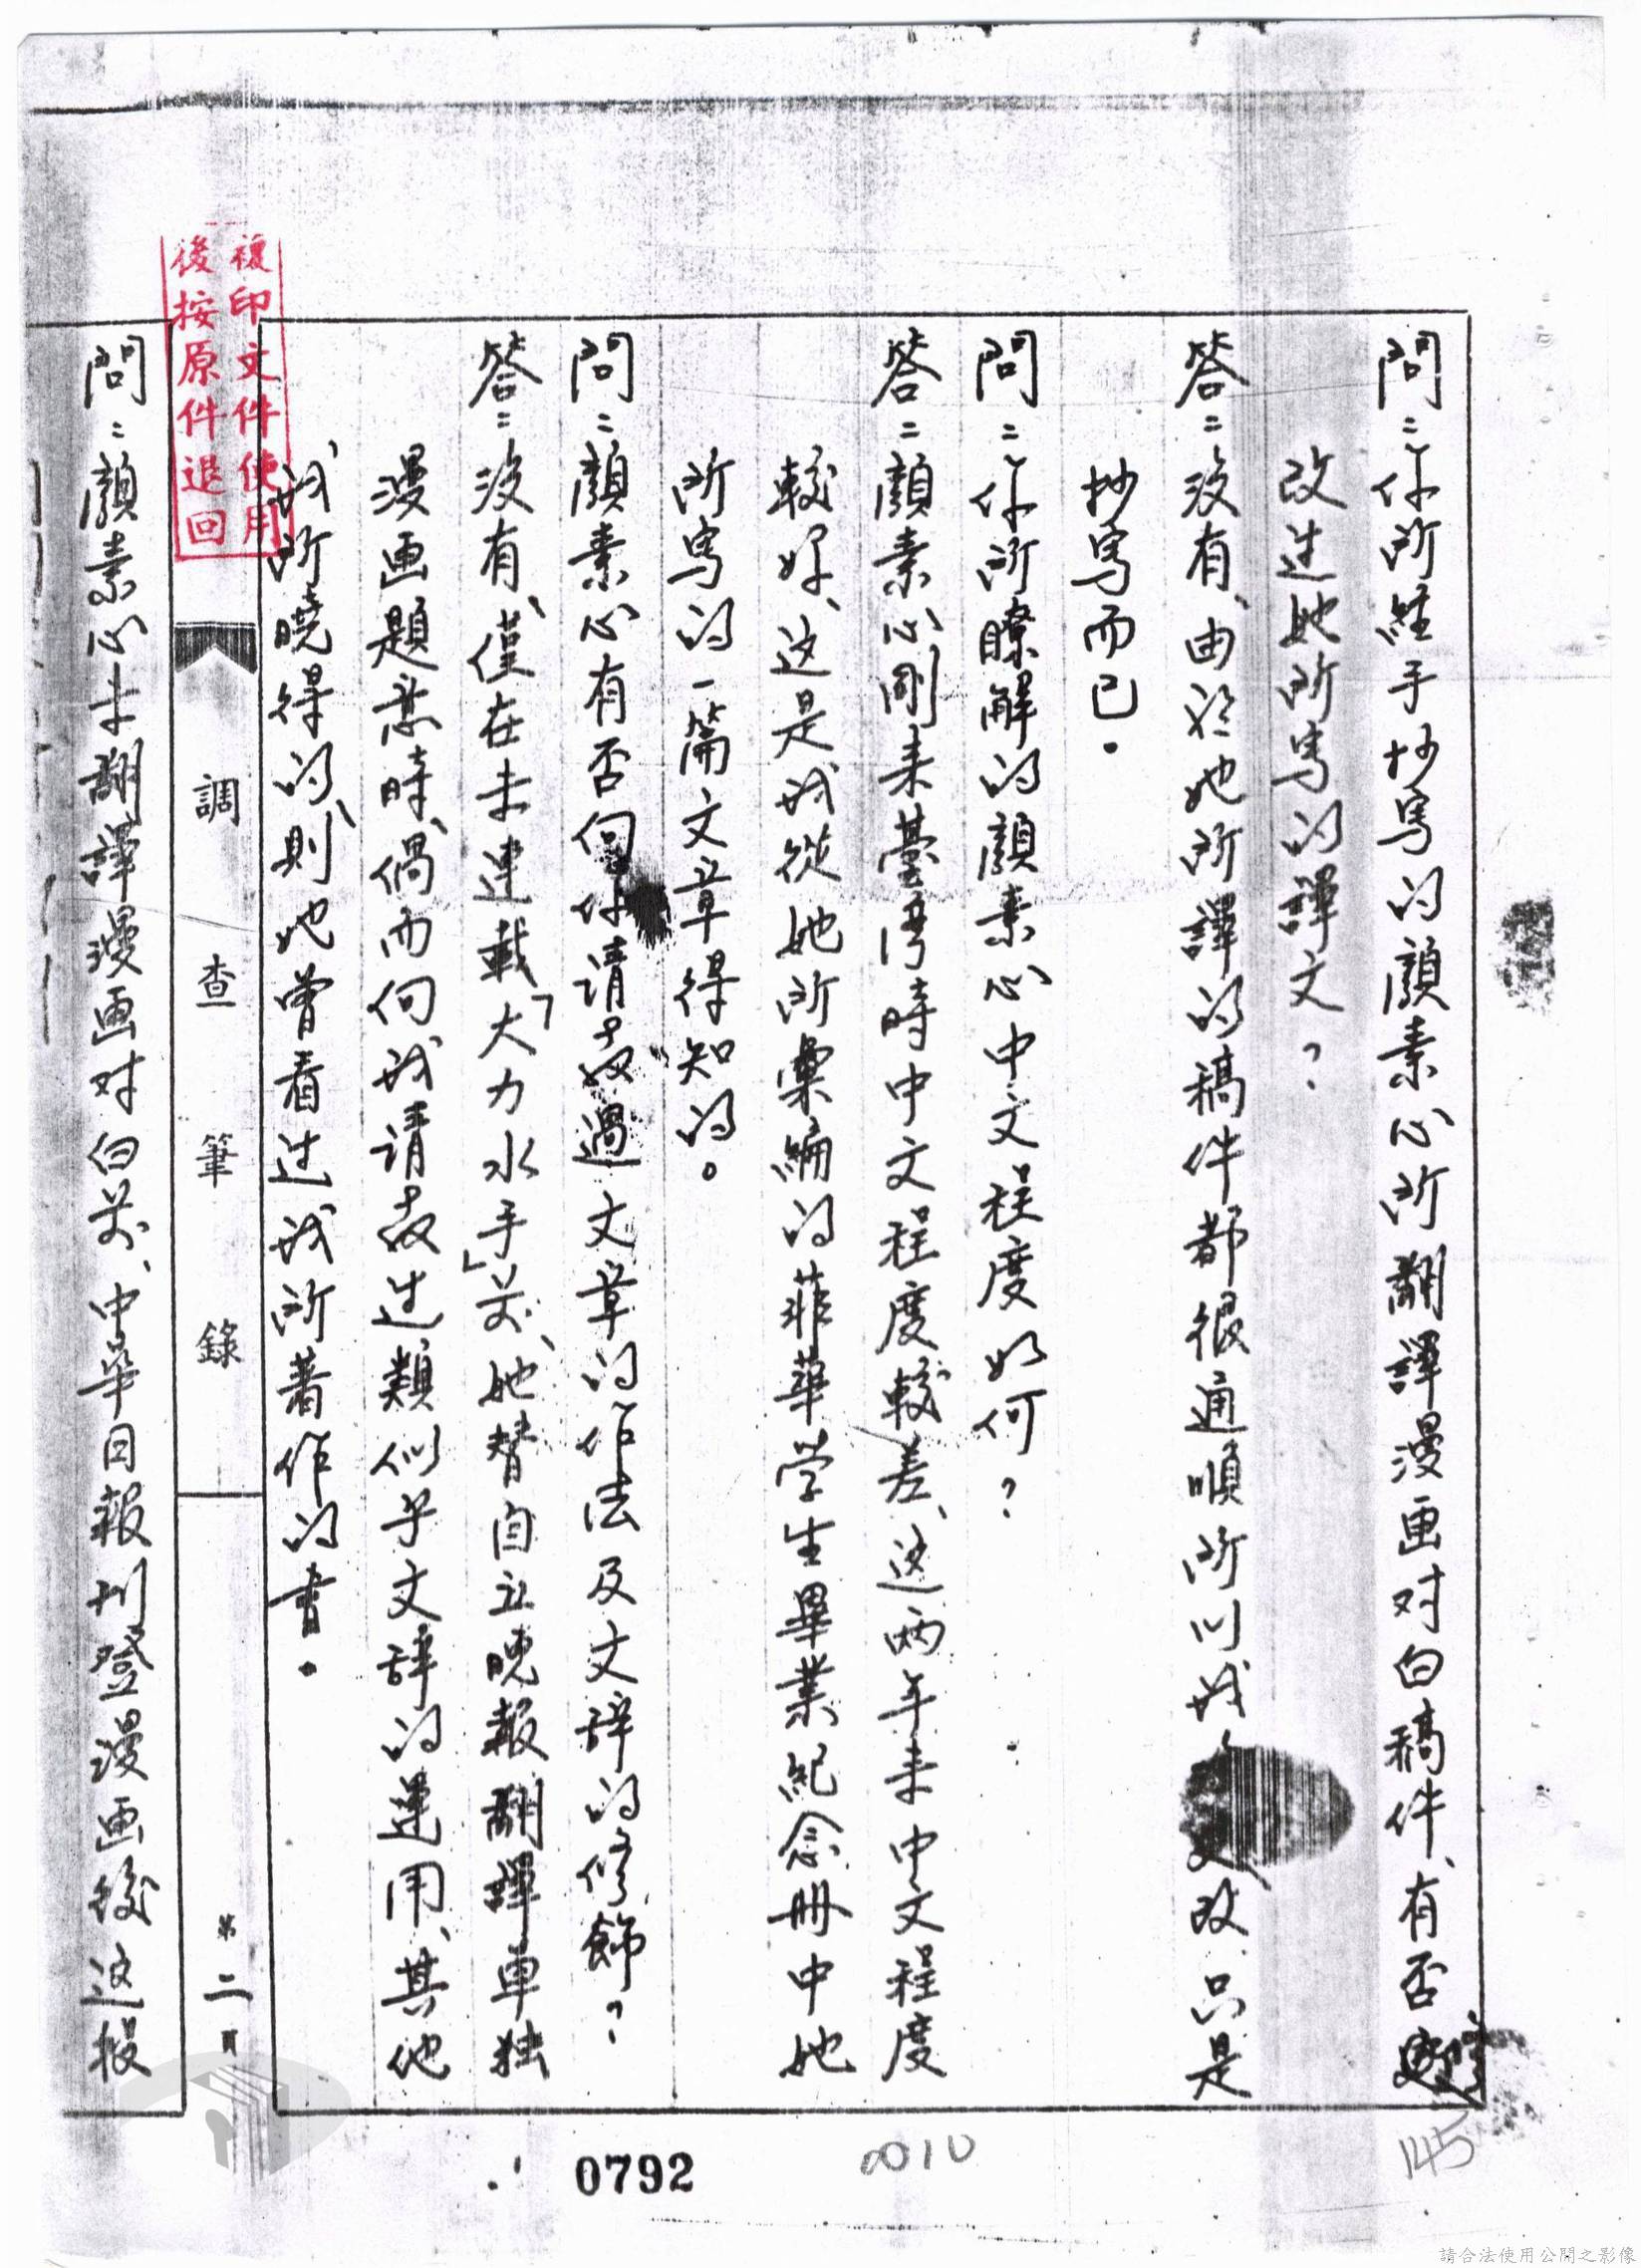 問：你所經手抄寫的顏素心所翻譯漫画对白稿件、有否
改过她所寫的譯文？
答：沒有、由於她所譯的稿件都很通順所以我更改、只是
抄寫而已。
問：你所瞭解的顏素心中文程度如何？
答：顏素心剛来臺灣時中文程度較差、这兩年来中文程度
較好、这是我從她所彙編的菲華学生畢業紀念冊中她
所寫的一篇文章得知的。
問：顏素心有否向你请教過文章的作法及文辞的修飾？
答：沒有、僅在未連載「大力水手」前、她替自立晚報翻譯单独
漫画題意時、偶而向我请教过類似乎文辞的運用、其他
我所曉得的、則她曾看过我所著作的書。
調查筆錄
第二頁
問：顏素心未翻譯漫画对白前、中華日報刊登漫画後这投
複印文件使用
後按原件退回
0792
0010
145
請合法使用公開之影像